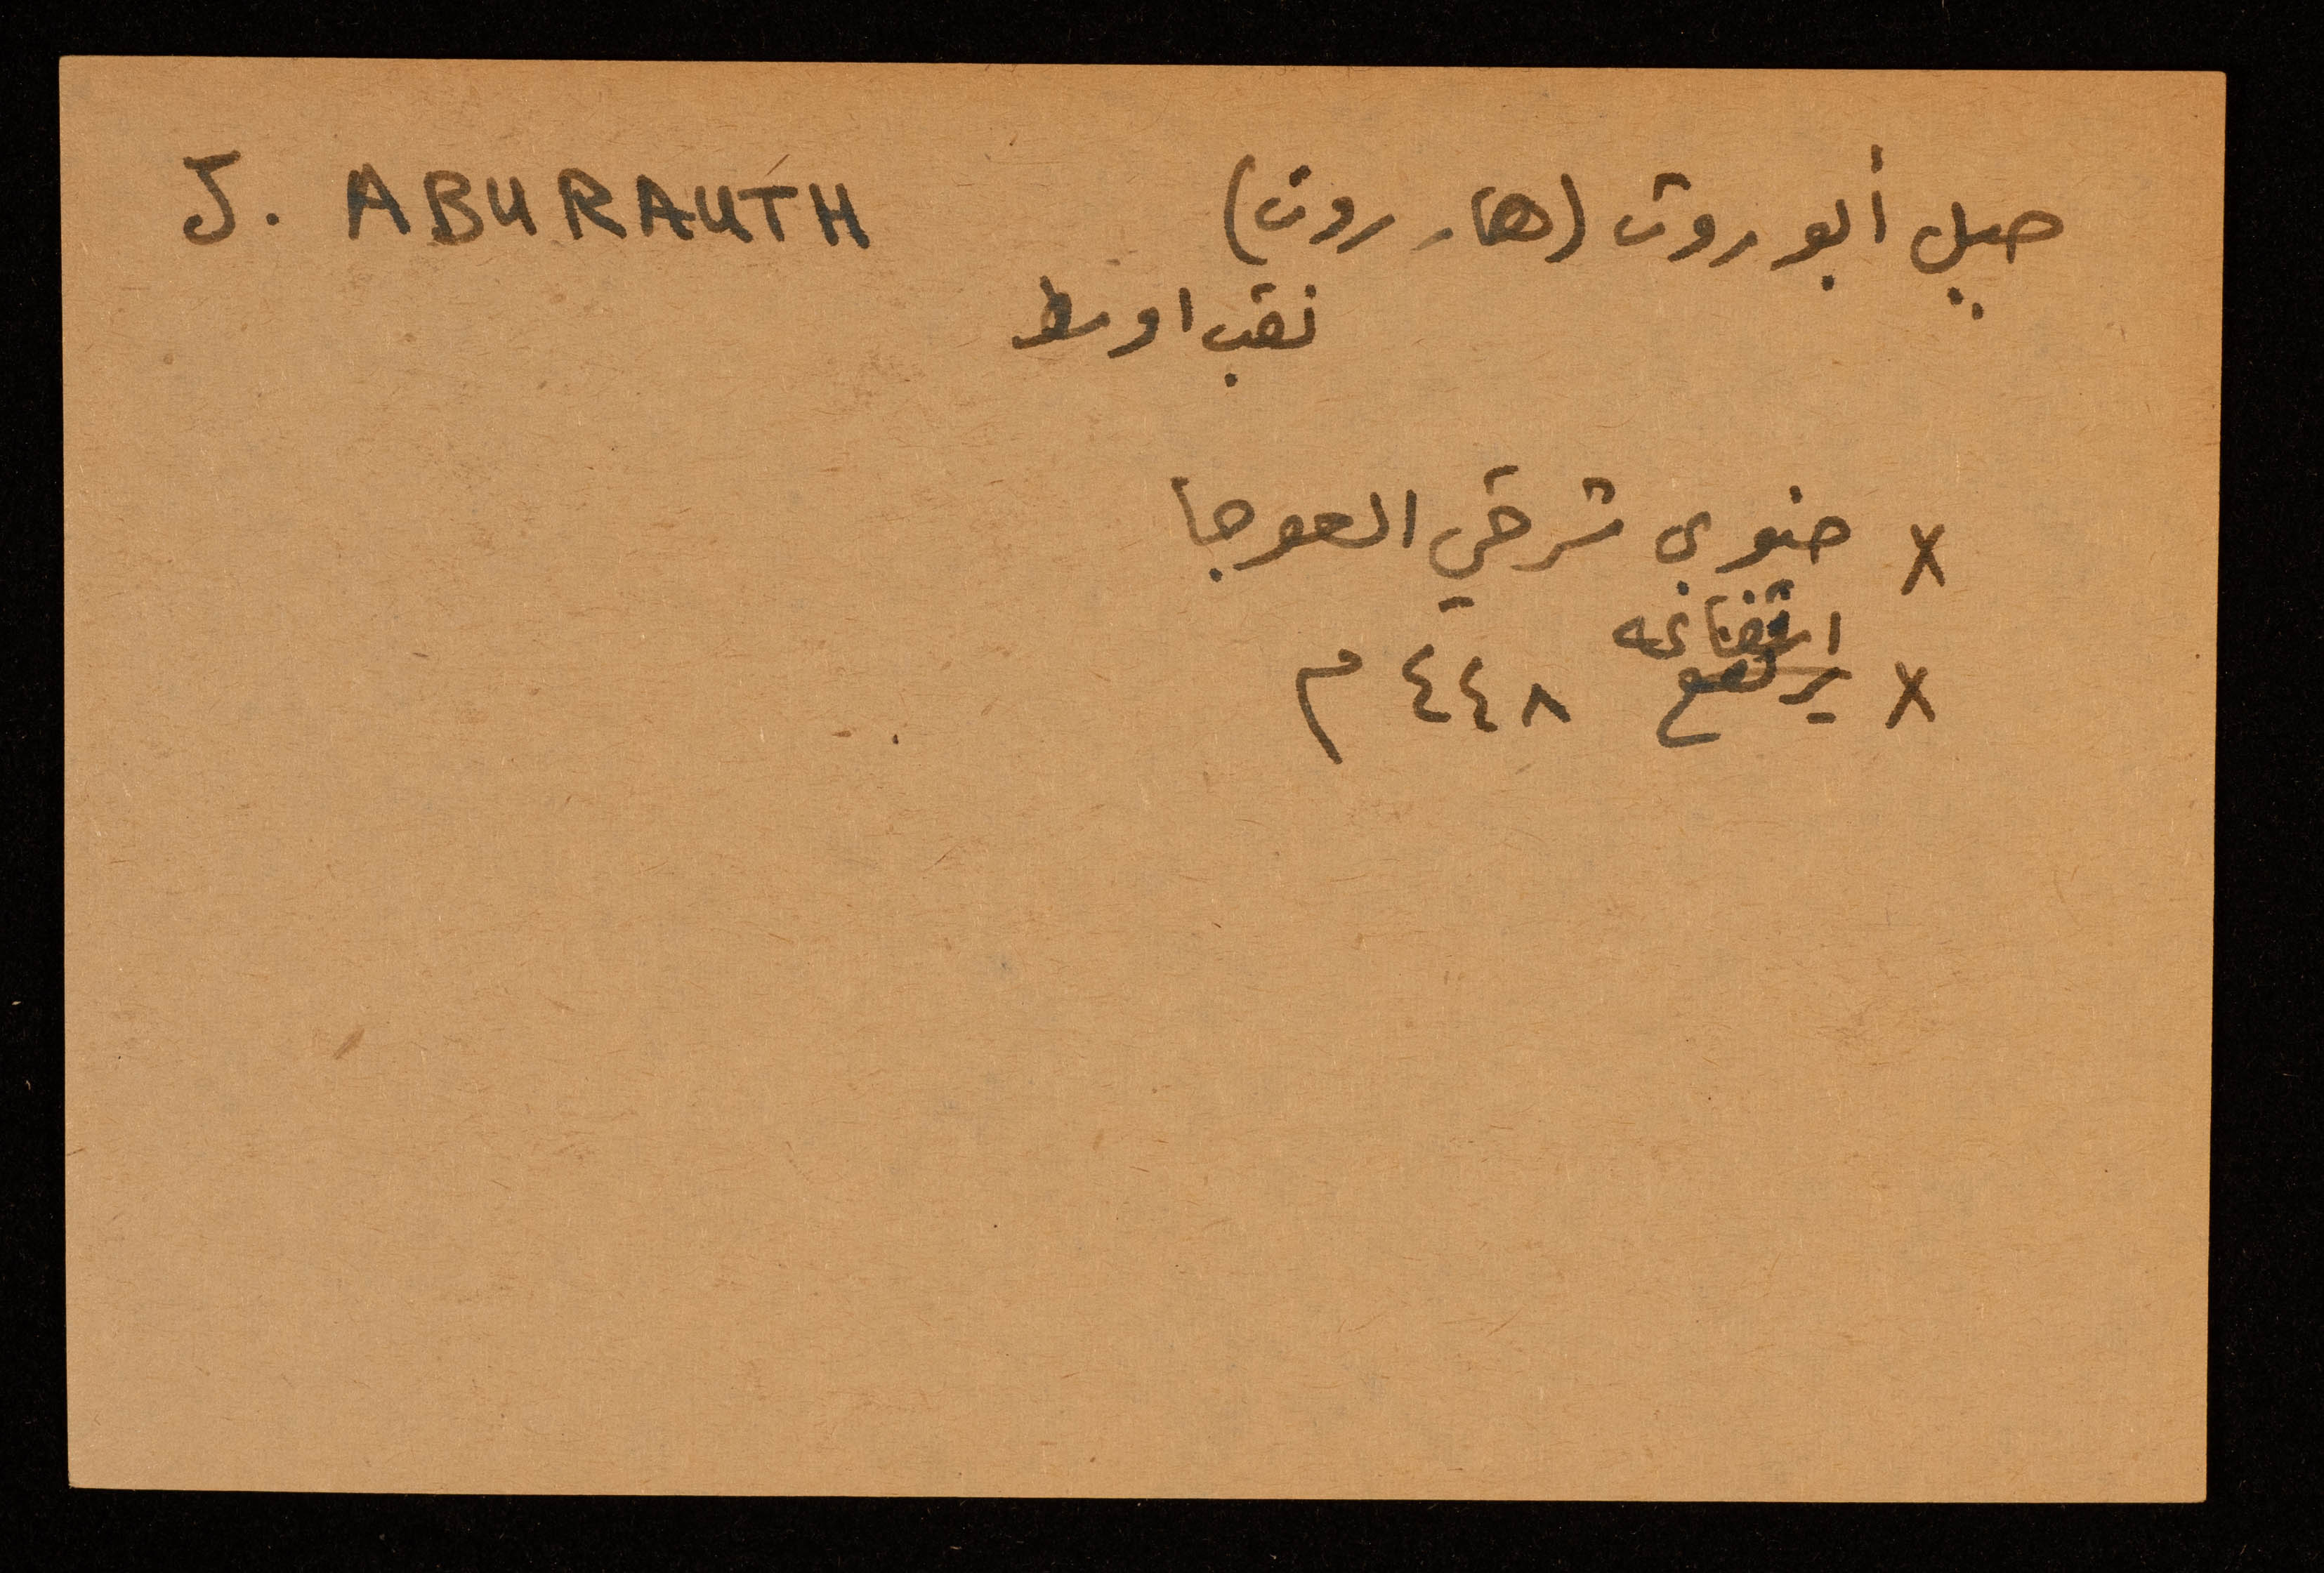 جبل أبو روث (هار روث) J. ABU RAUTH
نقب اوسط
x جنوبي شرقي العوجا
ارتفاعه
x يرتفع ٤٤٨ م